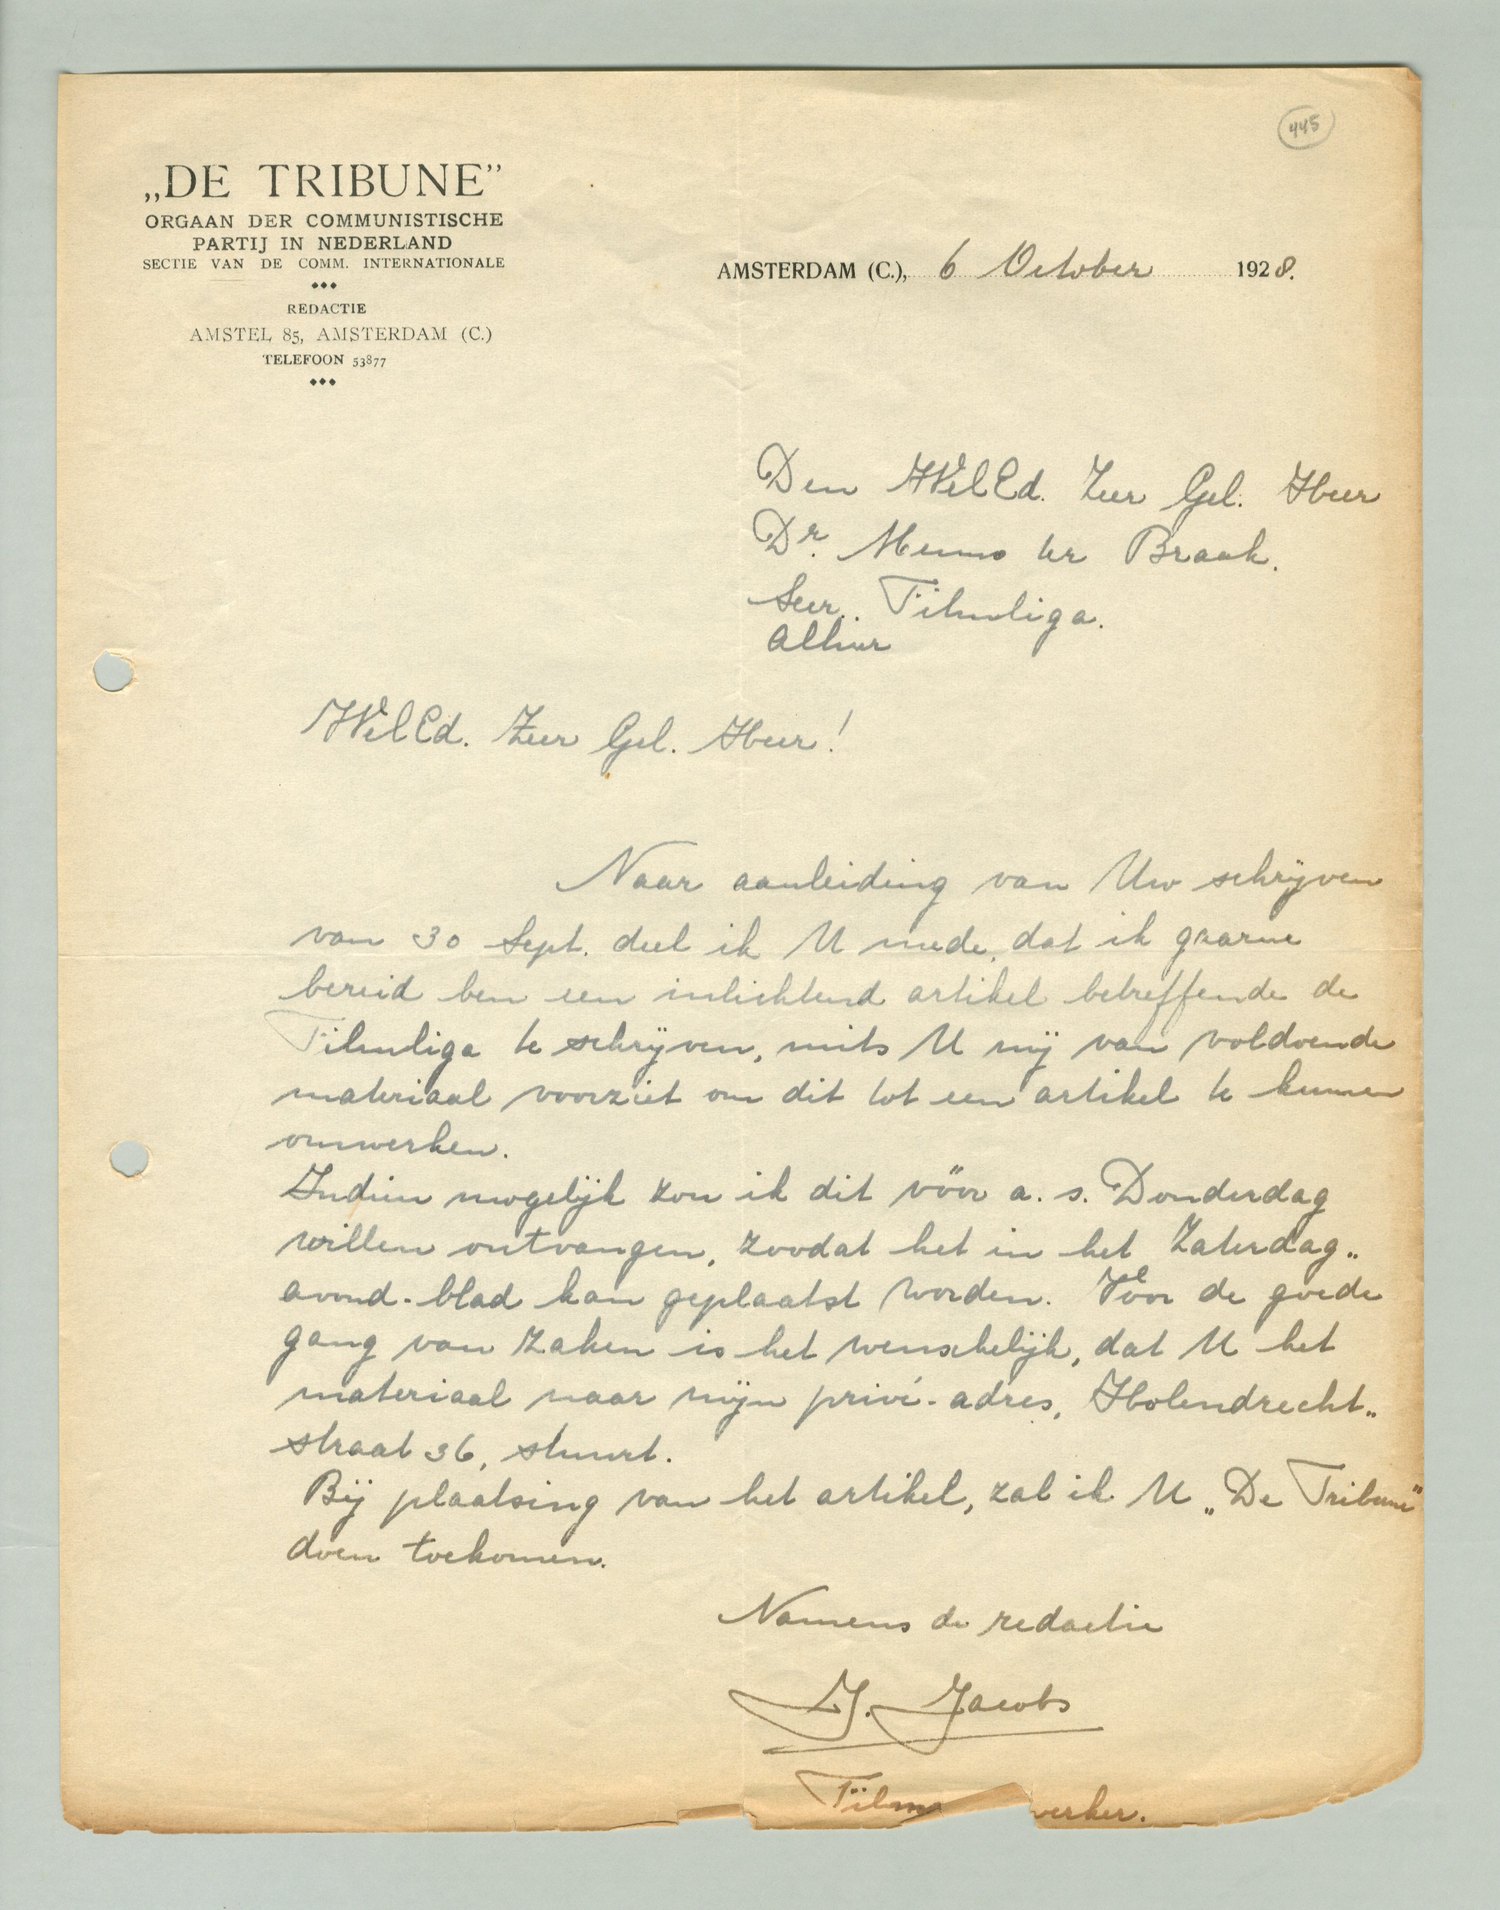 445
„DE TRIBUNE”
ORGAAN DER COMMUNISTISCHE
PARTIJ IN NEDERLAND
SECTIE VAN DE COMM. INTERNATIONALE
REDACTIE
AMSTEL 85, AMSTERDAM (C.)
TELEFOON 53877
AMSTERDAM (C.), 6 October 1928.
Den WelEd. Zeer Gel. Heer
Dr. Menno ter Braak.
Secr. Filmliga.
Alhier
WelEd. Zeer Gel. Heer!
Naar aanleiding van Uw schrijven
van 30 Sept. deel ik U mede, dat ik gaarne
bereid ben een inlichtend artikel betreffende de
Filmliga te schrijven, mits U mij van voldoende
materiaal voorziet om dit tot een artikel te kunnen
omwerken.
Indien mogelijk zou ik dit vóór a. s. Donderdag
willen ontvangen, zoodat het in het Zaterdag„
avond-blad kan geplaatst worden. Voor de goede
gang van zaken is het wenschelijk, dat U het
materiaal naar mijn privé-adres, Holendrecht„
straat 36, stuurt.
Bij plaatsing van het artikel, zal ik U „De Tribune”
doen toekomen.
Namens de redactie
Jacobs
Film werker.